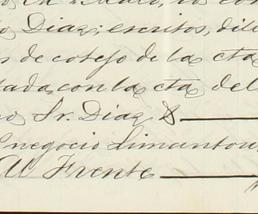 Diaz; escritos, dil
s de cotejo de la cta
tada, con la cta del
Sr. Diaz &
negocio Limantou
Al Frente